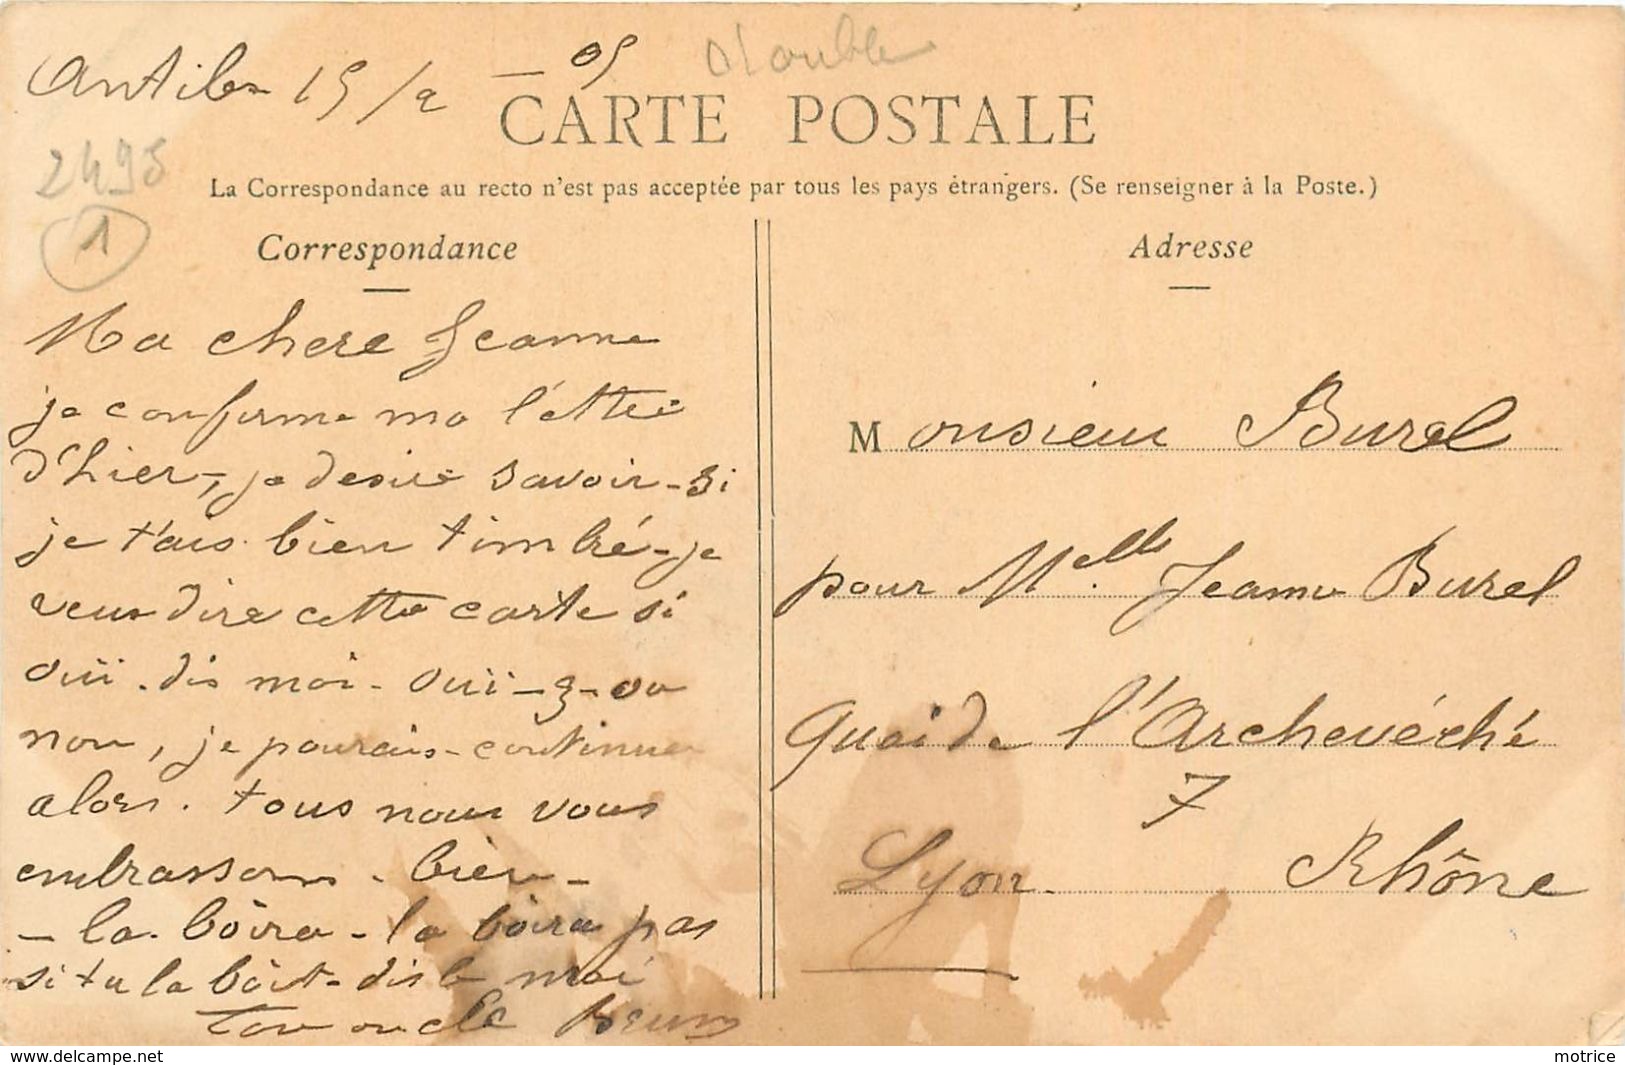 Antibes 15/2 - 05
double
CARTE POSTALE
2495
1
La Correspondance au recto n'est pas acceptée par tous les pays étrangers. (Se renseigner à la Poste.)
Correspondance
Ma chere Jeanne
je confirme ma l'ettre
d'hier, je desire savoir-si
je t'ais bien timbré-je
veux dire cette carte si
ouï. dis moi- ouï-z-ou
non, je pourais-continuer
alors. tous nous vous
embrassons. bien-
- la bôira-la bôira pas
si tu la bôit-dis le moi
Ton oncle
Adresse
Monsieur Burel
pour Melle Jeanne Burel
Quai de l'Archevéché
7
Lyon. Rhône
motrice
https://www.delcampe.net